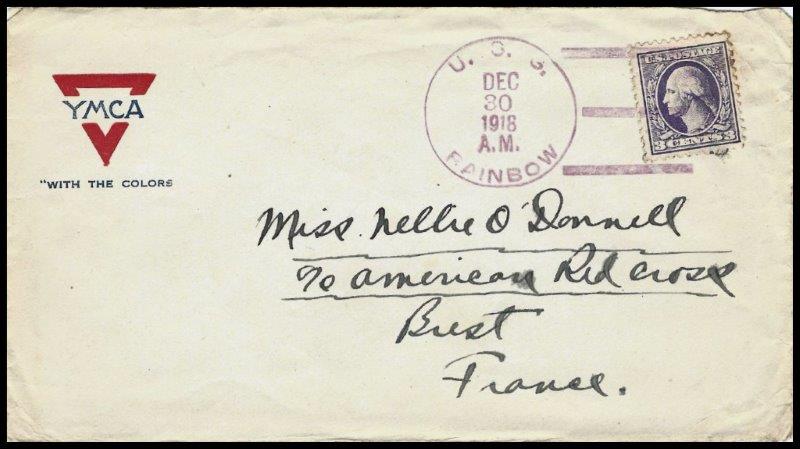 YMCA
"WITH THE COLORS
U. S. S.
DEC
30
1918
A.M.
RAINBOW
U.S. POSTAGE
3 CENTS 3
Miss. Nellie O'Donnell
℅ American Red Cross
Brest
France.